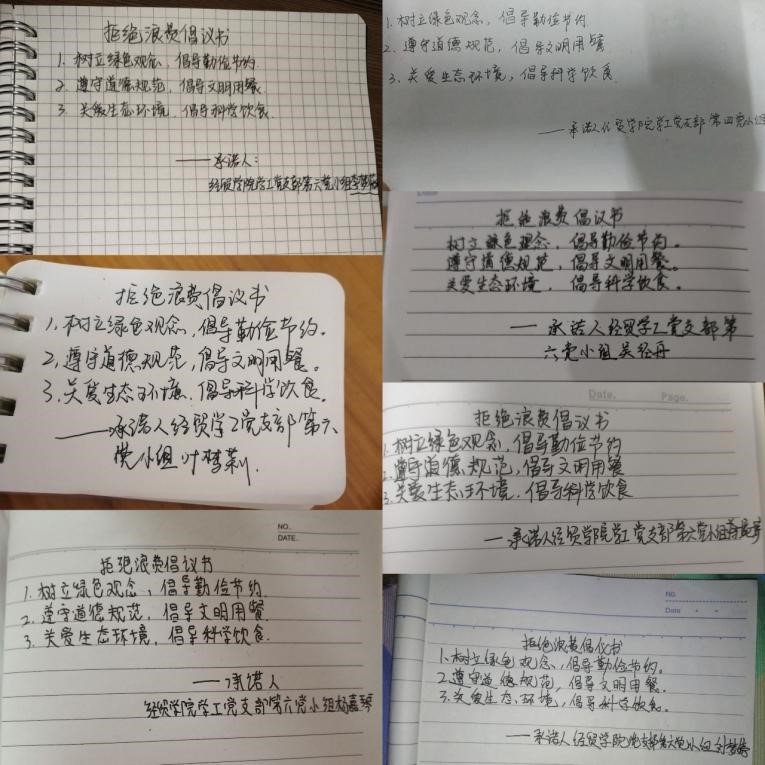 拒绝浪费倡议书
1. 树立绿色观念，倡导勤俭节约.
2. 遵守道德规范，倡导文明用餐.
3. 关爱生态环境，倡导科学饮食.
——承诺人：
经贸学院学工党支部第六党小组
1. 树立绿色观念，倡导勤俭节约.
2. 遵守道德规范，倡导文明用餐
3. 关爱生态环境，倡导科学饮食.
——承诺人经贸学院学工党支部第四党小组
拒绝浪费倡议书
树立绿色理念，倡导勤俭节约。
遵守道德规范，倡导文明用餐。
关爱生态环境，倡导科学饮食。
——承诺人经贸学工党支部第
六党小组吴经丹
拒绝浪费倡议书
1, 树立绿色观念，倡导勤俭节约。
2, 遵守道德规范，倡导文明用餐。
3, 关爱生态环境，倡导科学饮食。
——承诺人经贸学工党支部第六
党小组叶梦莉.
Date. Page.
拒绝浪费倡议书
1. 树立绿色观念，倡导勤俭节约
2. 遵守道德规范，倡导文明用餐
3. 关爱生态环境，倡导科学饮食
——承诺人经贸学院学工党支部第六党小组
NO.
DATE.
拒绝浪费倡议书
1. 树立绿色观念，倡导勤俭节约.
2. 遵守道德规范，倡导文明用餐.
3. 关爱生态环境，倡导科学饮食.
——承诺人
经贸学院学工党支部第六党小组杨嘉琴
NO
Date
拒绝浪费倡仪书
1. 树立绿色观念，倡导勤俭节约。
2. 遵守道德规范，倡导文明用餐.
3. 关爱生态环境，倡导科学饮食.
——承诺人 经贸学院党支部第六党小组